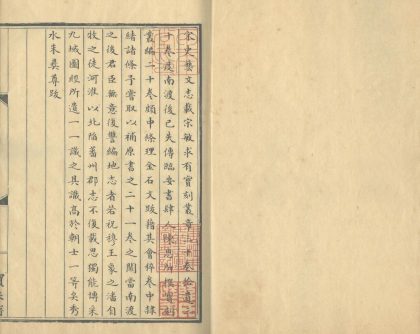 宋史藝文志載宋敏求有寶刻叢章三十卷拾遺三
十卷慶南渡後已失傳臨安書肆人陳思所撰寶刻
叢編二十卷頗中條理金石文跋藉其會稡卷中隸
緒諸條予嘗取以補原書之二十一卷之闕當南渡
之後君臣無意復讐編地志者若祝穆王象之潘自
牧之徒河淮以北陷蕃州郡志不復載思獨能博采
九域圖經所遺一一識之其識高於朝士一等矣秀
水朱彝尊跋